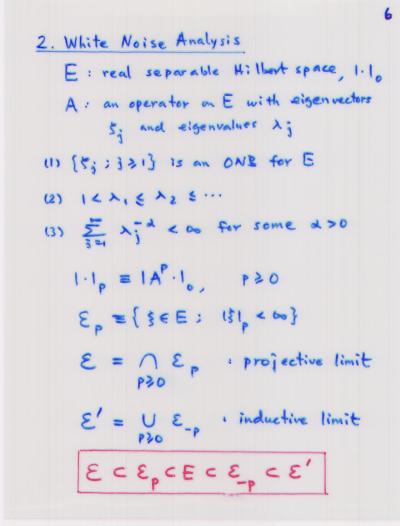 6
2. White Noise Analysis
E : real separable Hilbert space, |·|₀
A : an operator on E with eigenvectors
ξⱼ and eigenvalues λⱼ
(1) {ξⱼ ; j≥1} is an ONB for E
(2) 1 < λ₁ ≤ λ₂ ≤ ···
(3) ∑_{j=1}^{∞} λⱼ^{-α} < ∞ for some α>0
|·|ₚ ≡ |Aᵖ·|₀, p≥0
ℰₚ ≡ {ξ∈E ; |ξ|ₚ < ∞}
ℰ = ∩_{p≥0} ℰₚ : projective limit
ℰ′ = ∪_{p≥0} ℰ₋ₚ : inductive limit
ℰ ⊂ ℰₚ ⊂ E ⊂ ℰ₋ₚ ⊂ ℰ′